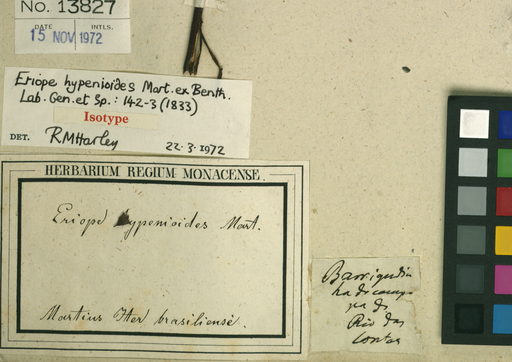 No. 13827
DATE INTLS.
15 NOV 1972
Eriope hypenioides Mart. ex Benth.
Lab. Gen. et Sp.: 142-3 (1833)
Isotype
DET. RMHarley 22·3·1972
HERBARIUM REGIUM MONACENSE.
Eriope hypenioides Mart.
Martius Iter brasiliense.
Rio das
Contas